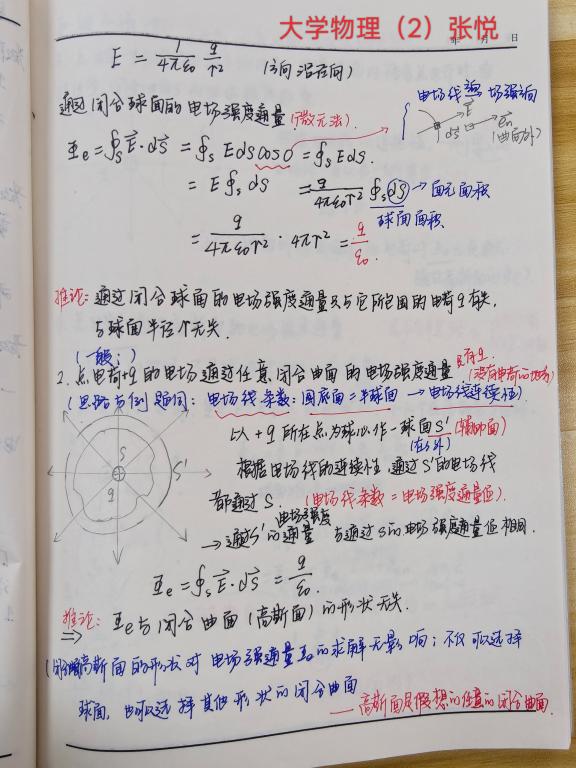 大学物理（2）张悦
年 月 日
E = 1/4πε₀ q/r² （方向沿径向）
通过闭合球面的电场强度通量（微元法）.
电场线 场强方向
E⃗
dS e⃗n
（曲面外）
Φe = ∮s E⃗·dS⃗ = ∮s E dS cos0 = ∮s E dS.
= E ∮s dS = q/4πε₀r² ∮s dS → 面元面积
球面面积
= q/4πε₀r² · 4πr² = q/ε₀.
推论: 通过闭合球面的电场强度通量只与它所包围的电荷q有关,
与球面半径r无关.
（一般:）
2. 点电荷+q的电场通过任意闭合曲面的电场强度通量 只有q.
（没有电荷的地方）
（思路与例题同: 电场线条数: 圆底面=半球面 → 电场线连续性）
以+q所在点为球心作一球面S'（辅助面）
（在S外）
S
S'
q
根据电场线的连续性,通过S'的电场线
都通过S. （电场线条数=电场强度通量值）.
→ 通过S'的电场强度通量与通过S的电场强度通量值相同.
Φe = ∮s E⃗·dS⃗ = q/ε₀.
推论: Φe与闭合曲面（高斯面）的形状无关.
⇒
高斯面的形状对电场强通量Φe的求解无影响; 不仅可以选择
球面, 也可以选择其他形状的闭合曲面
— 高斯面是假想的任意的闭合曲面.